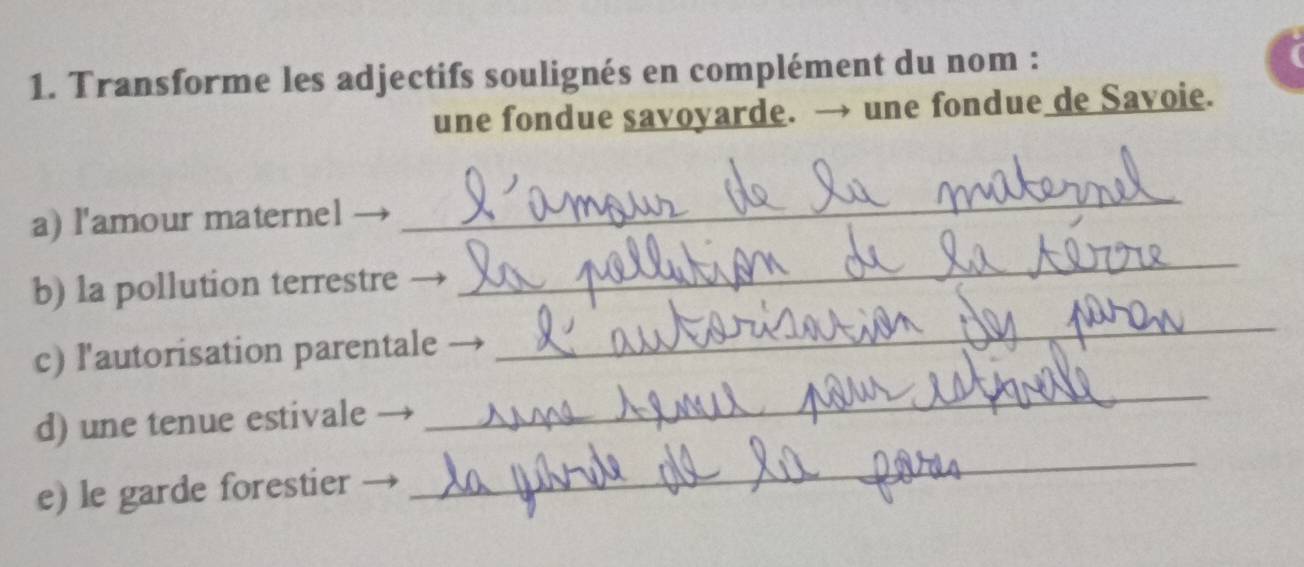 1. Transforme les adjectifs soulignés en complément du nom :
une fondue savoyarde. → une fondue de Savoie.
a) l'amour maternel → l'amour de la maternel
b) la pollution terrestre → la pollution de la térre
c) l'autorisation parentale → l'autorisation des paren
d) une tenue estivale → une tenue pour estivale
e) le garde forestier → la garde de la